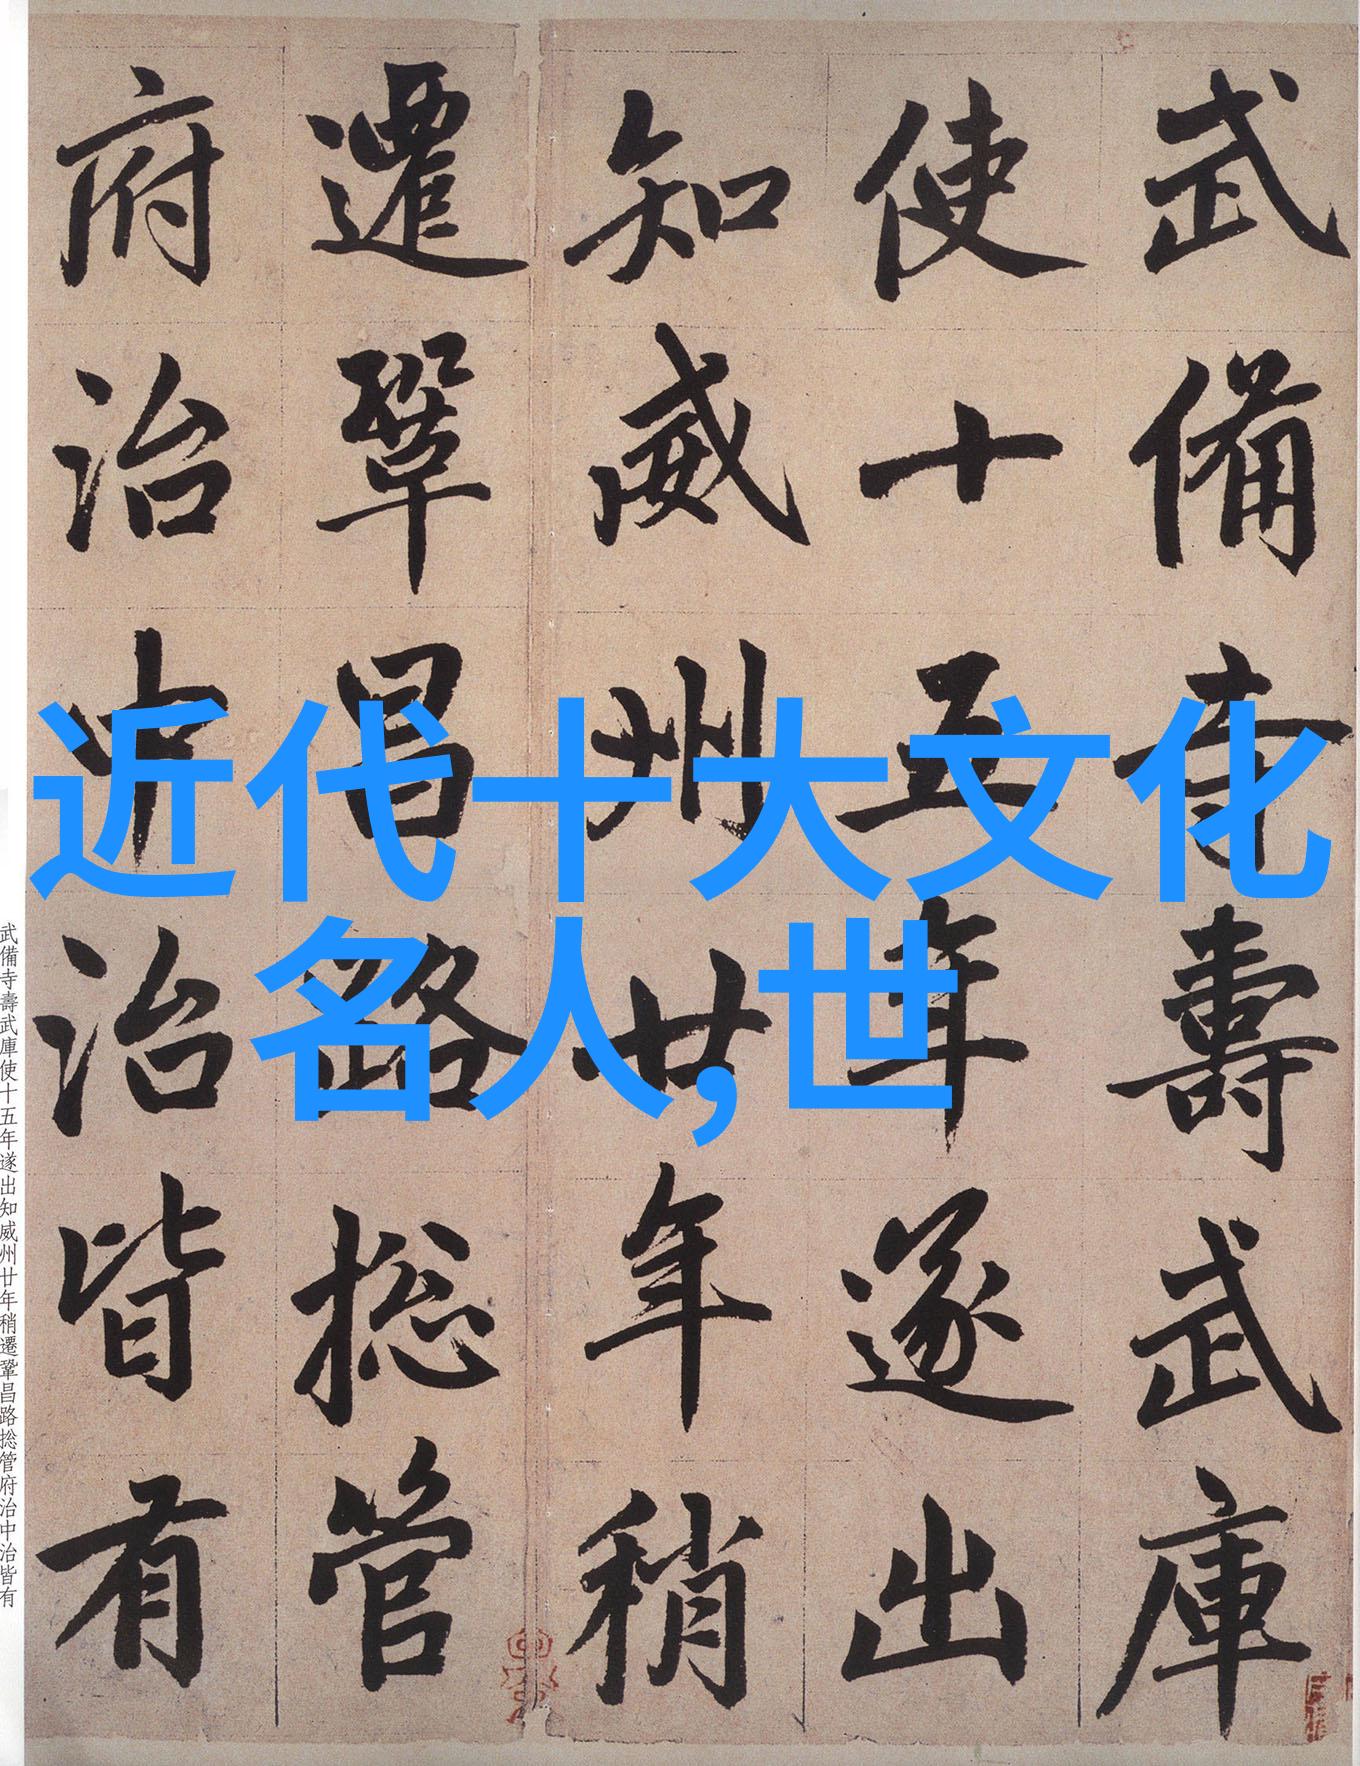 武備寺壽武庫
使十五年遂出
知威州廿年稍
遷鞏昌路捴管
府治中治皆有
近代十大文化
名人,世
武備寺壽武庫使十五年遂出知威州廿年稍遷鞏昌路捴管府治中治皆有